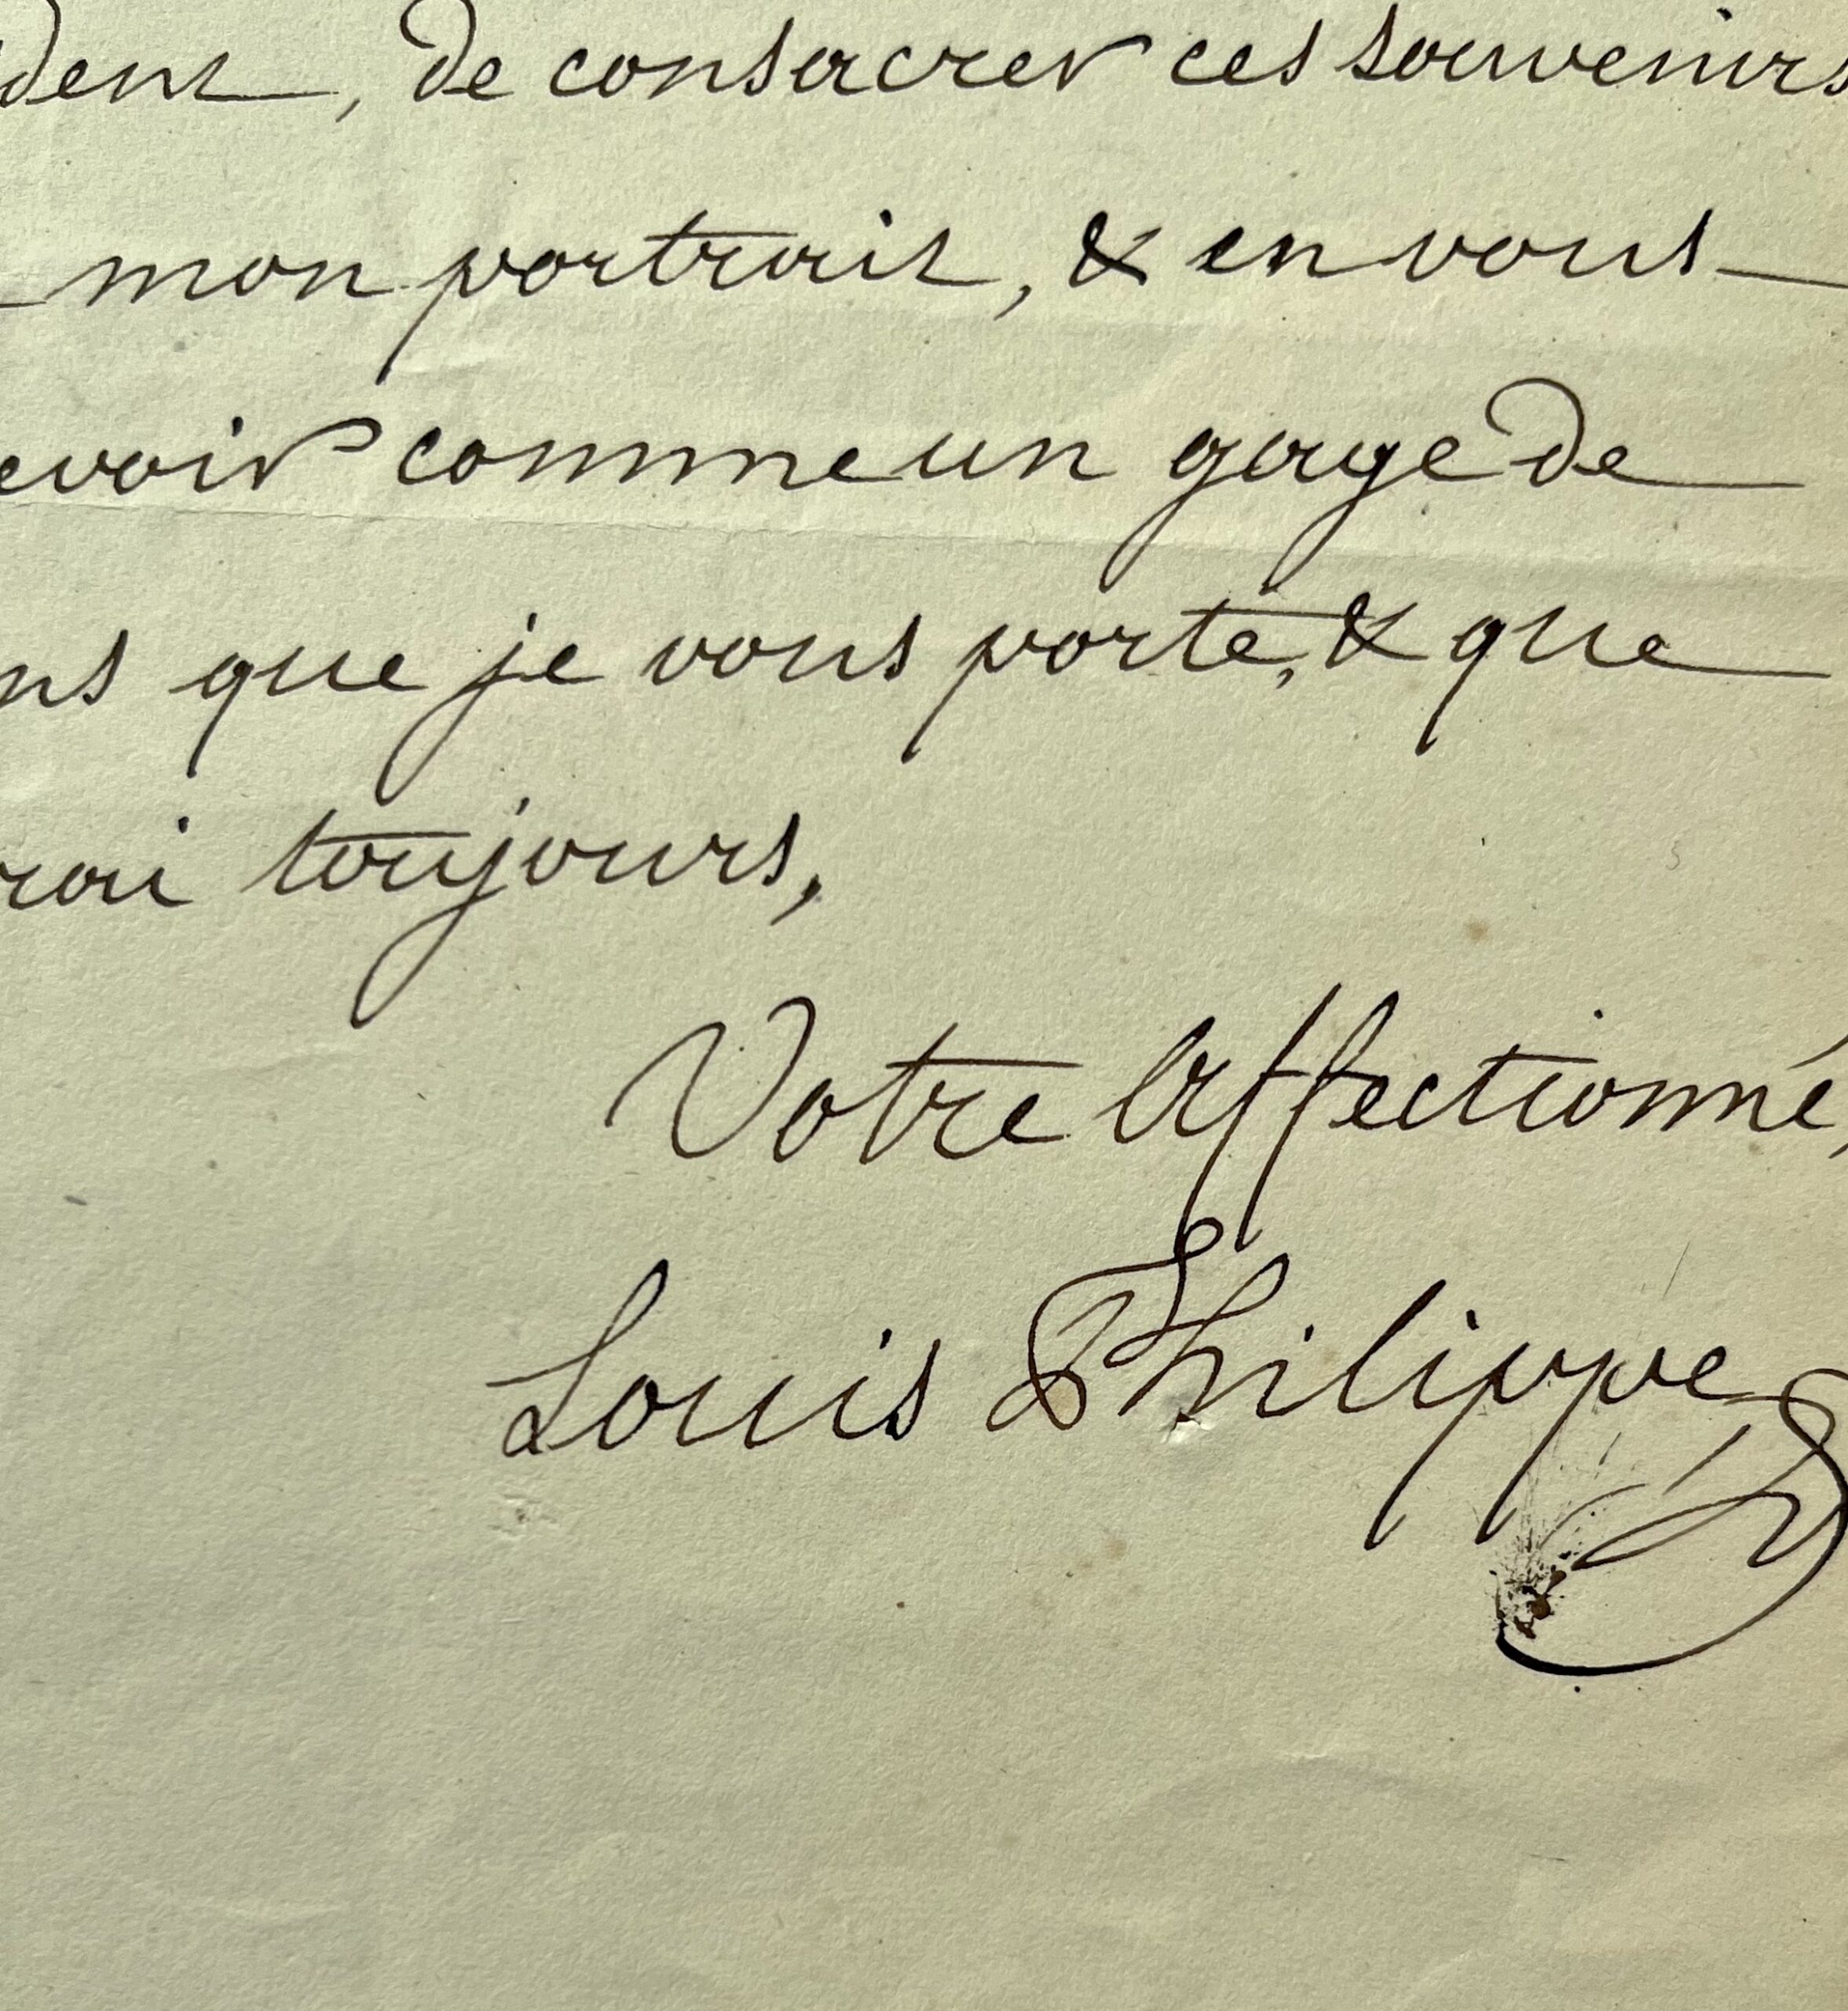 dent, de consacrer ces souvenirs
mon portrait, & en vous
evoir comme un gage de
ns que je vous porte, & que
rai toujours,
Votre Affectionné,
Louis Philippe